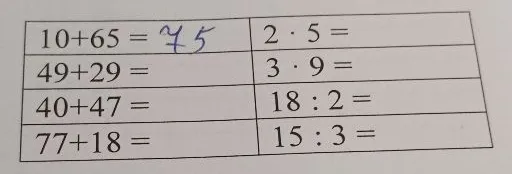 10+65 = 75
2 · 5 =
49+29 =
3 · 9 =
40+47 =
18 : 2 =
77+18 =
15 : 3 =